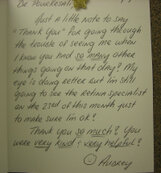 Just a little note to say
"Thank you" for going through
the trouble of seeing me when
I know you had so many other
things going on that day? My
eye is doing better but I'm still
going to see the retina specialist
on the 23rd of this month just
to make sure I'm ok!
Thank you so much! You
were very kind & very helpful!
Audrey